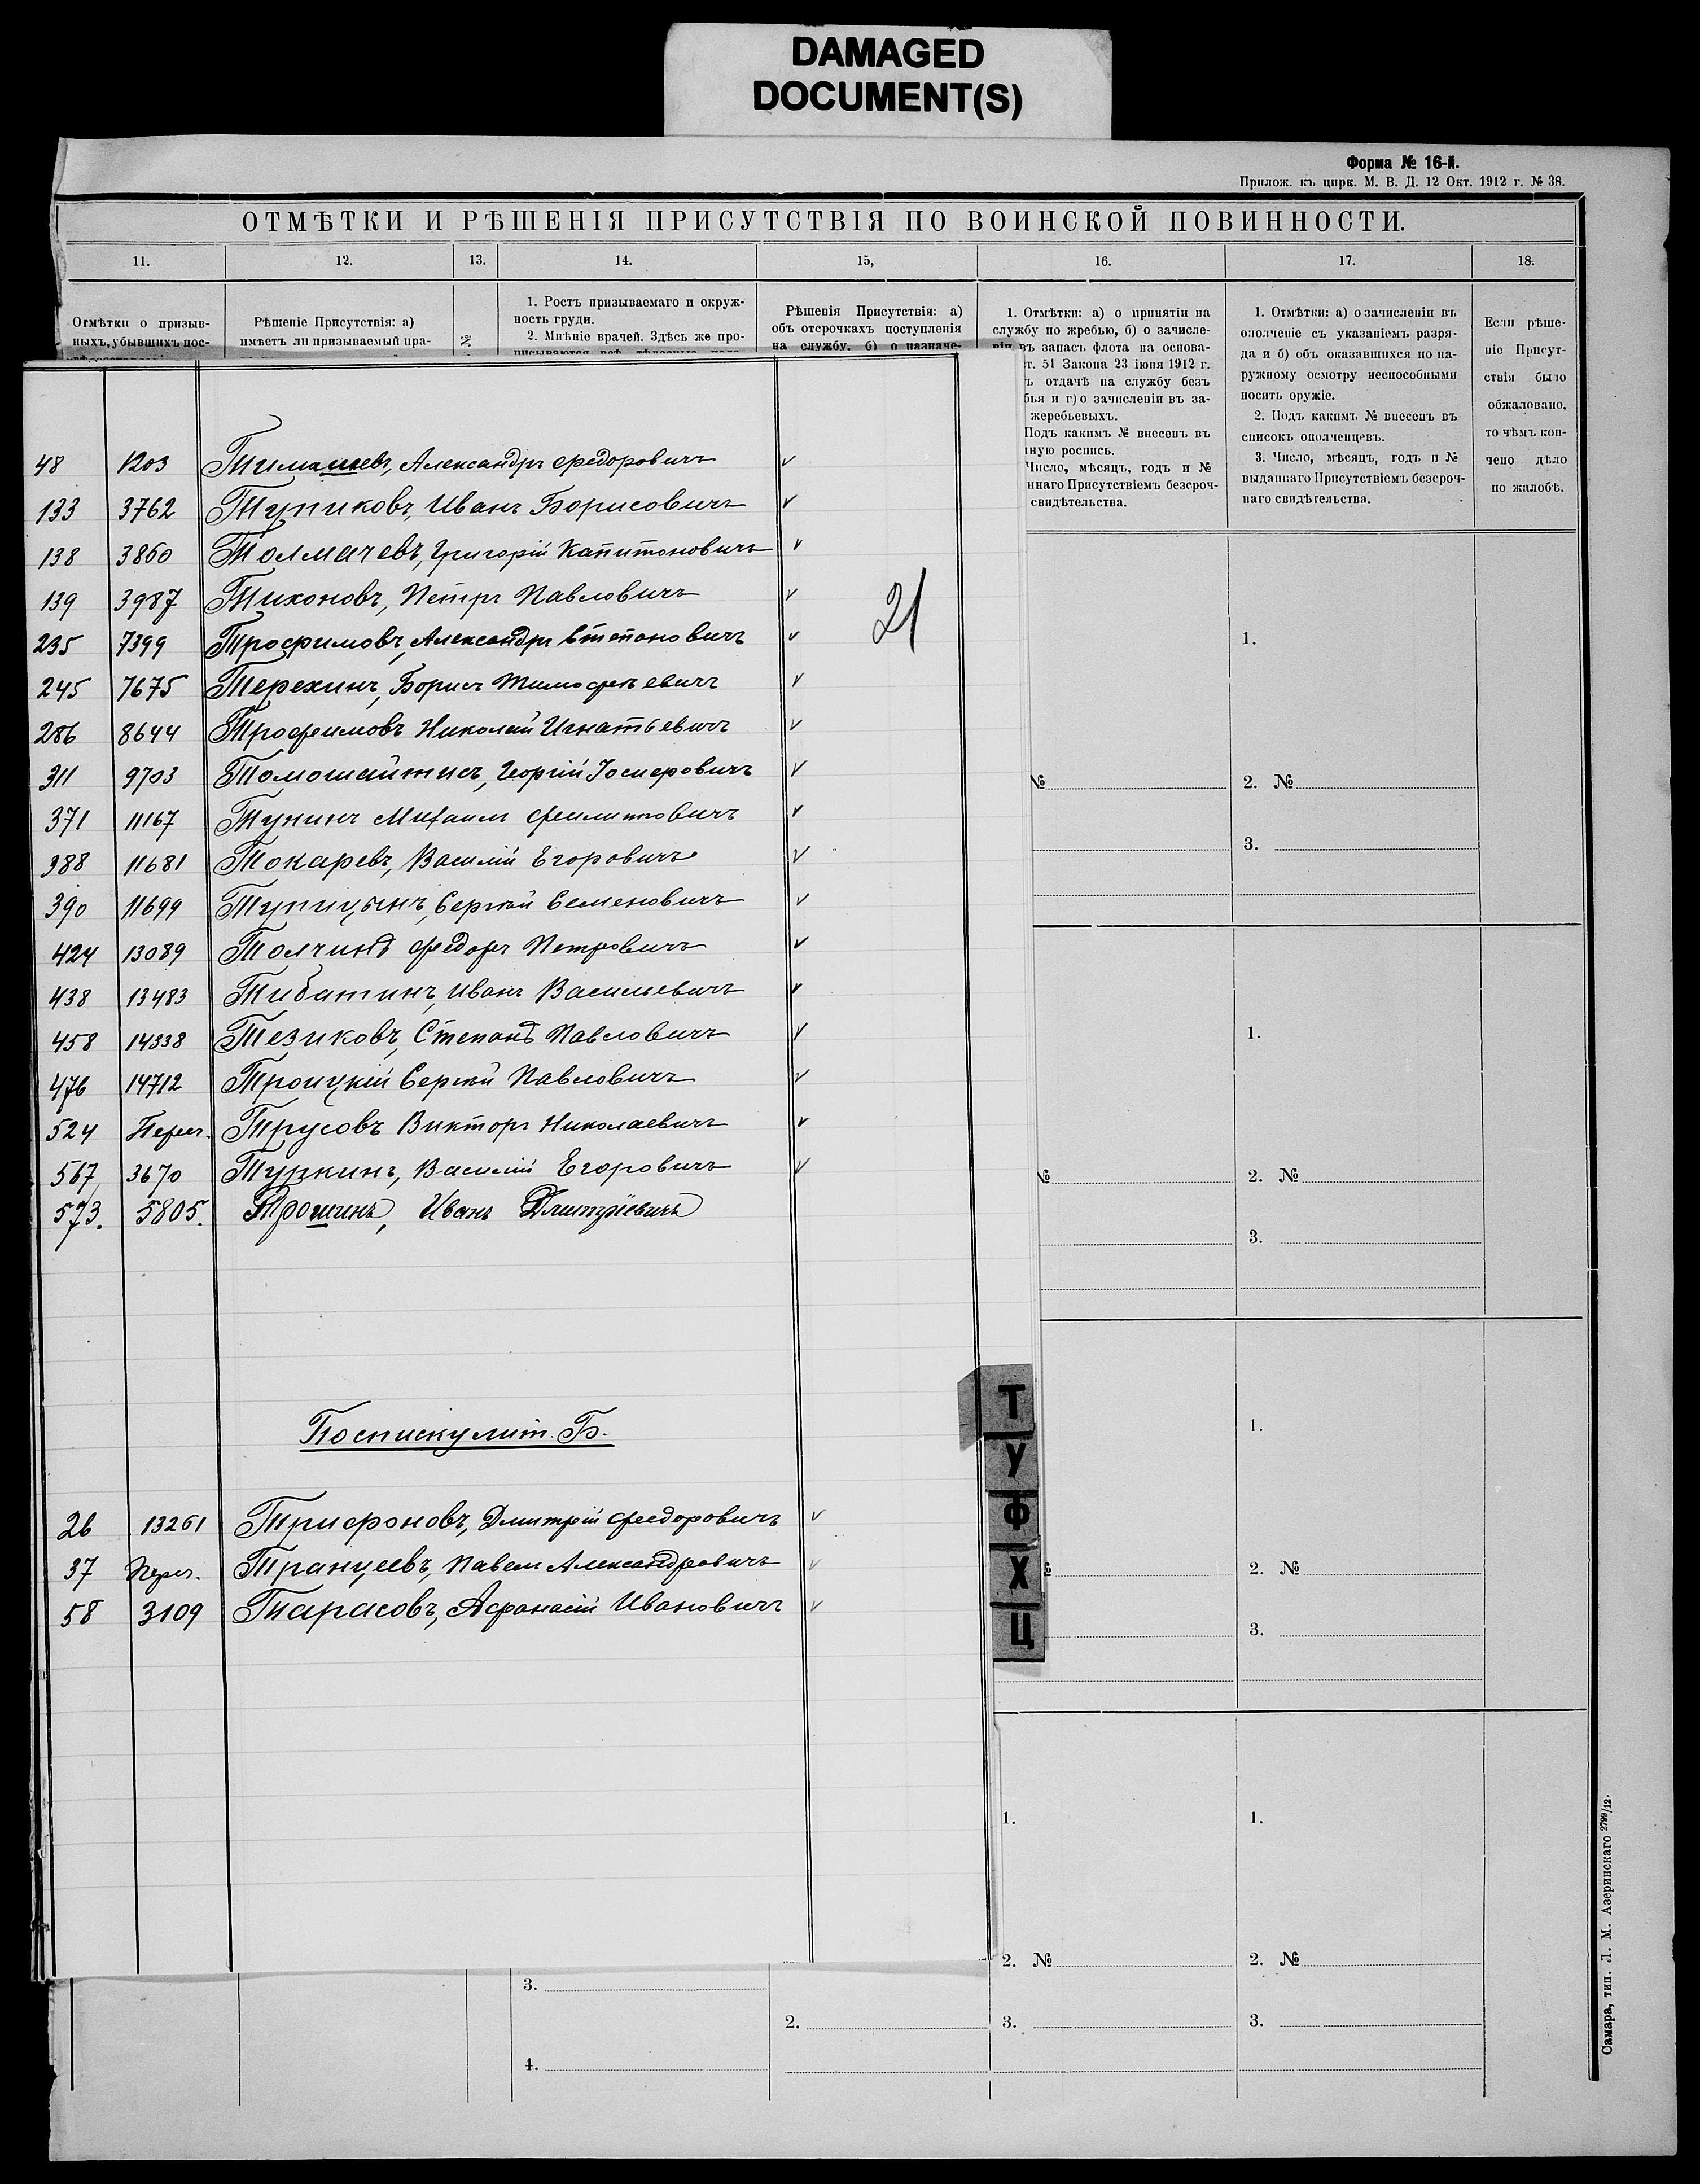 DAMAGED
DOCUMENT(S)
Форма № 16-й.
Прилож. къ цирк. М. В. Д. 12 Окт. 1912 г. № 38.
ОТМѢТКИ И РѢШЕНІЯ ПРИСУТСТВІЯ ПО ВОИНСКОЙ ПОВИННОСТИ.
11. 12. 13. 14. 15, 16. 17. 18.
Отмѣтки о призыв-
ныхъ, убывшихъ пос-
Рѣшеніе Присутствія: а)
имѣетъ ли призываемый пра-
№
1. Ростъ призываемаго и окруж-
ность груди.
2. Мнѣніе врачей. Здѣсь же про-
писываются всѣ тѣлесные
Рѣшенія Присутствія: а)
объ отсрочкахъ поступленія
на службу, б) о назначе-
1. Отмѣтки: а) о принятіи на
службу по жребью, б) о зачисле-
ніи въ запасъ флота на основа-
т. 51 Закона 23 іюня 1912 г.
ъ отдачѣ на службу безъ
бья и г) о зачисленіи въ за-
жеребьевыхъ.
Подъ какимъ № внесенъ въ
ную роспись.
Число, мѣсяцъ, годъ и №
ннаго Присутствіемъ безсроч-
свидѣтельства.
1. Отмѣтки: а) о зачисленіи въ
ополченіе съ указаніемъ разря-
да и б) объ оказавшихся по на-
ружному осмотру неспособными
носить оружіе.
2. Подъ какимъ № внесенъ въ
списокъ ополченцевъ.
3. Число, мѣсяцъ, годъ и №
выданнаго Присутствіемъ безсроч-
наго свидѣтельства.
Если рѣше-
ніе Присут-
ствія было
обжаловано,
то чѣмъ кон-
чено дѣло
по жалобѣ.
48 1203 Тимашевъ, Александръ Федоровичъ
133 3762 Тупиковъ, Иванъ Борисовичъ
138 3860 Толмачевъ, Григорій Капитоновичъ
139 3987 Тихоновъ, Петръ Павловичъ
21
235 7399 Трофимовъ, Александръ Степановичъ
245 7675 Терехинъ, Борисъ Тимофеевичъ
286 8644 Трофимовъ Николай Игнатьевичъ
311 9703 Томошайтисъ, Георгій Іосифовичъ
371 11167 Тунинъ Михаилъ Филипповичъ
388 11681 Токаревъ, Василій Егоровичъ
390 11699 Тупицынъ, Сергей Семеновичъ
424 13089 Толчинъ Федоръ Петровичъ
438 13483 Тибатинъ, Иванъ Васильевичъ
458 14338 Тезиковъ, Степанъ Павловичъ
476 14712 Троицкій Сергей Павловичъ
524 Переч. Трусовъ Викторъ Николаевичъ
567 3670 Туркинъ, Василій Егоровичъ
573. 5805. Трошинъ, Иванъ Дмитріевичъ
По списку лит. Б.
26 13261 Трифоновъ, Дмитрій Федоровичъ
37 Переч. Транцеевъ, Павелъ Александровичъ
58 3109 Тарасовъ, Афанасій Ивановичъ
Т
У
Ф
Х
Ц
1.
№ 2. №
3.
1.
№ 2. №
3.
1.
№ 2. №
3.
1. 1.
2. № 2. №
3. 2. 3. 3.
4.
Самара, тип. Л. М. Азеринскаго 2799/12.